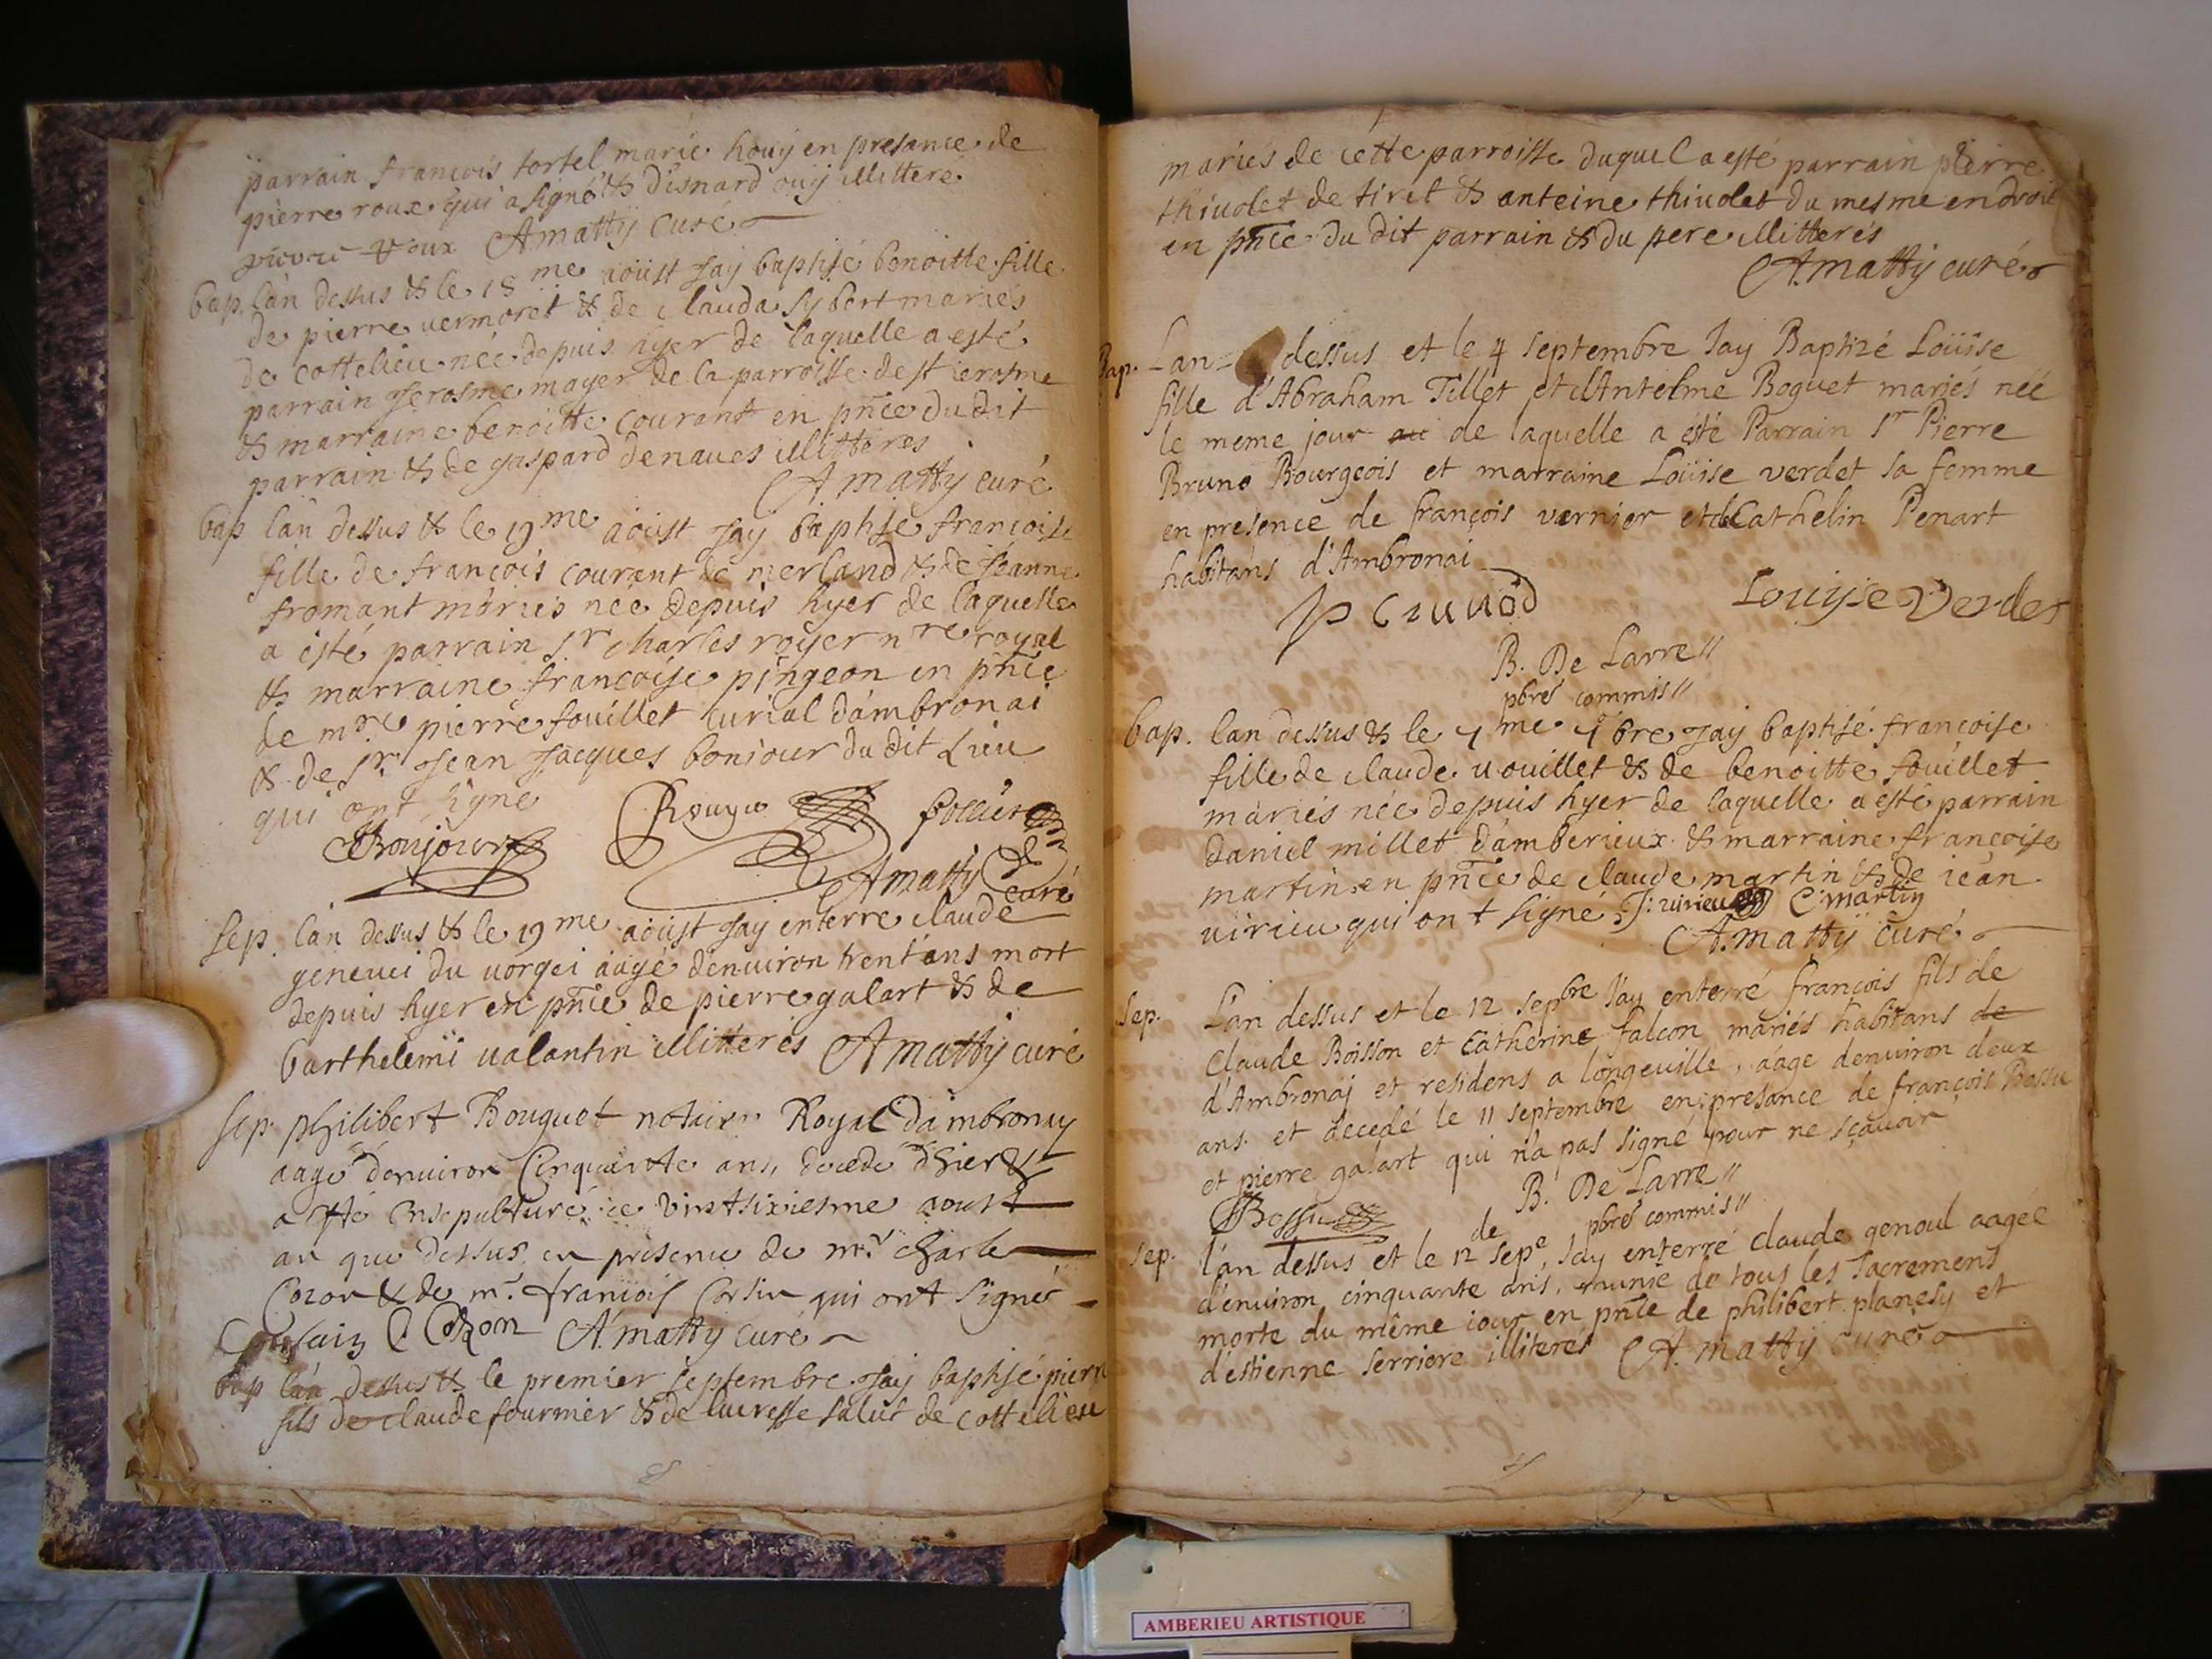 parrain francois tortel marié houy en presance de
pierre roux qui a signé & disnard ouy illitteré
pierre Roux Amatty Curé
bap. lan dessus & le 18me aoust Jay baptisé benoitte fille
de pierre vermoret & de clauda sybert mariés
de cottelieu née depuis hyer de laquelle a esté
parrain Jerosme mayer de la parroisse de st jerosme
& marraine benoitte courant en pnce du dit
parrain & de gaspard denaves illitteres
Amatty curé
bap lan dessus & le 19me aoust Jay baptisé francoise
fille de francois courent de merland & de Jeanne
fromant mariés née depuis hyer de laquelle
a esté parrain Sr charles royer nre royal
& marraine francoise pingeon en pnce
de mre pierre fouillet curial dambronai
& de Sr Jean Jacques bonjour du dit Lieu
qui ont signé
Bonjour
Amatty curé
sep. lan dessus & le 19me aoust Jay enterré claude
genevei du vorgei aagé denviron trent ans mort
depuis hyer en pnce de pierre galart & de
barthelemi valantin illitterés Amatty curé
sep. philibert Bouguet notaire Royal dambronay
aagé denviron Cinquante ans, decedé dhier &
a esté ensepulturé ce vintsixiesme aoust
an que dessus en presence de mr charle
Cozon & de mr francois qui ont signés
C Cozon A. matty curé
bap lan dessus & le premier septembre Jay baptisé pierre
fils de claude fournier & de lucresse salut de cottelieu
mariés de cette parroisse duquel a esté parrain pierre
thivolet de tiret & anteine thivolet du mesme endroit
en pnce du dit parrain & du pere illitterés
Amatty curé
Bap. Lan dessus et le 4 septembre Jay Baptizé Loüise
fille d'Abraham Tillet et d'Antelme Boguet mariés néé
le meme jour au de laquelle a été Parrain Sr Pierre
Bruno Bourgeois et marraine Loüise verdet sa femme
en presence de françois varnier et de Cathelin Penart
habitans d'Ambronai
Louise Verdet
B. De Larre
pbre commis
bap. lan dessus & le 4me 7bre Jay baptisé francoise
fille de claude vouillet & de benoitte fouillet
mariés née depuis hyer de laquelle a esté parrain
daniel millet damberieux & marraine francoise
martin en pnce de claude martin & de iean
virieu qui ont signé J: virieu C martin
A. matty curé
Sep. L'an dessus et le 12 sepbre J'ay enterré françois fils de
Claude Boisson et Catherine falcon mariés habitans de
d'Ambronaj et residens a longeville, aage denviron deux
ans. et decedé le 11 septembre en presance de françois Bossu
et pierre galart qui n'a pas signé pour ne sçavoir
B. De Larre
Bossu pbre commis
sep. l'an dessus et le 12 de sepe, Jay enterré claude genoul aagee
d'environ cinquante ans, munie de tous les sacremens
morte du même iour en pnce de philibert planesy et
d'estienne serriere illiteres A. matty curé
AMBERIEU ARTISTIQUE